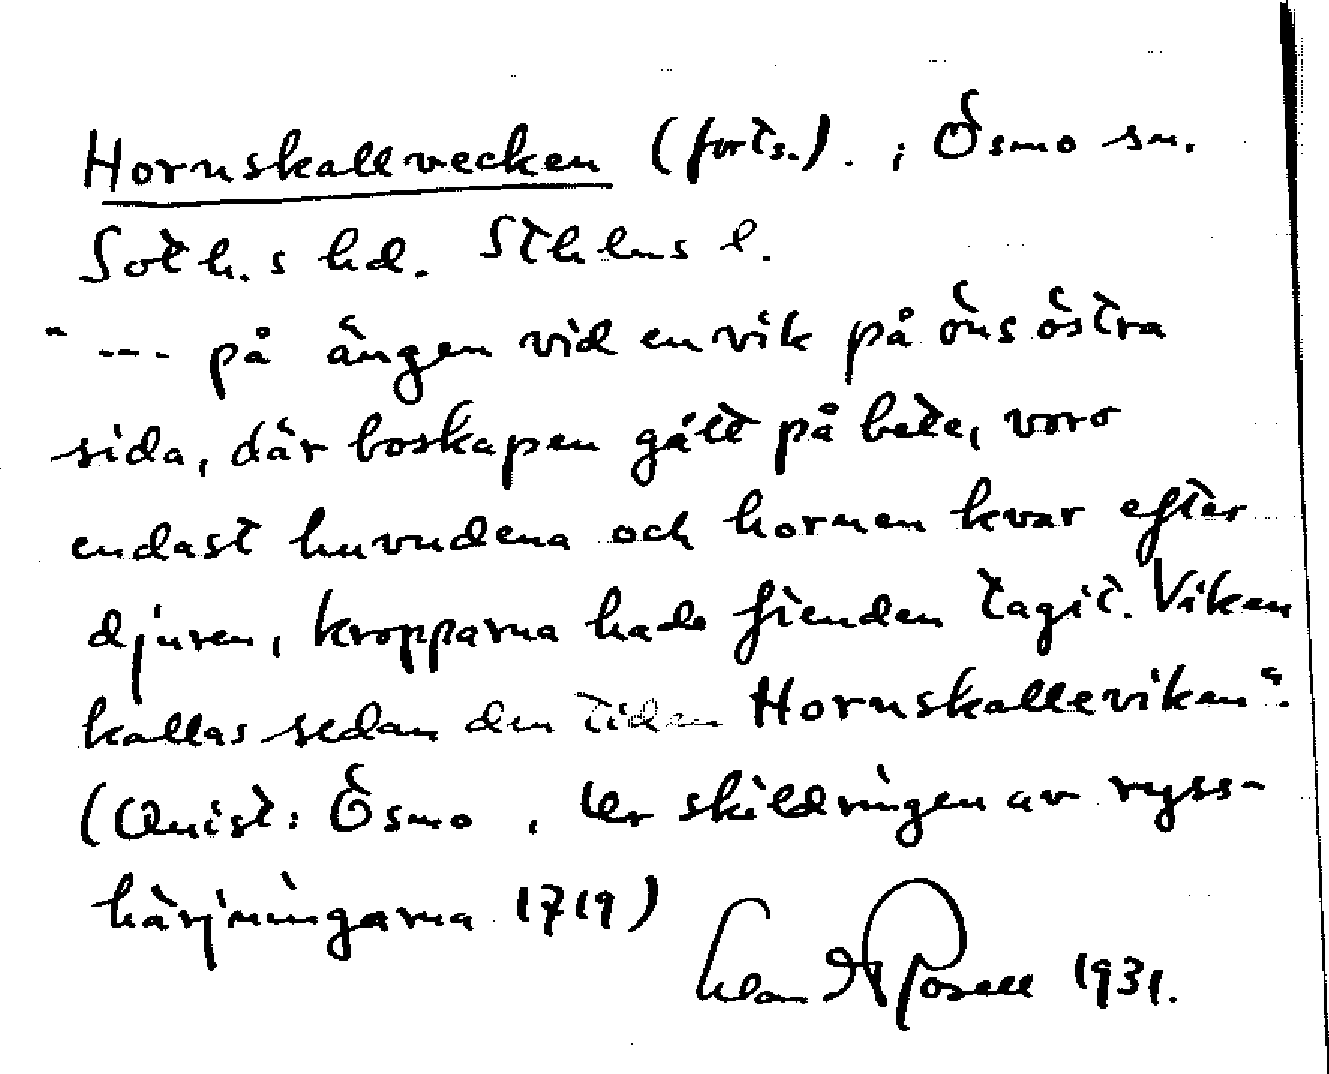 Hornskallvecken (forts.). i Ösmo sn.
Soth.s hd. Sthlms l.
"--- på ängen vid en vik på öns östra
sida, där boskapen gått på bete, voro
endast huvudena och hornen kvar efter
djuren, kropparna hade fienden tagit. Viken
kallas sedan den tiden Hornskalleviken".
(Quist: Ösmo, Ur skildringen av ryss-
härjningarna 1719)
1931.